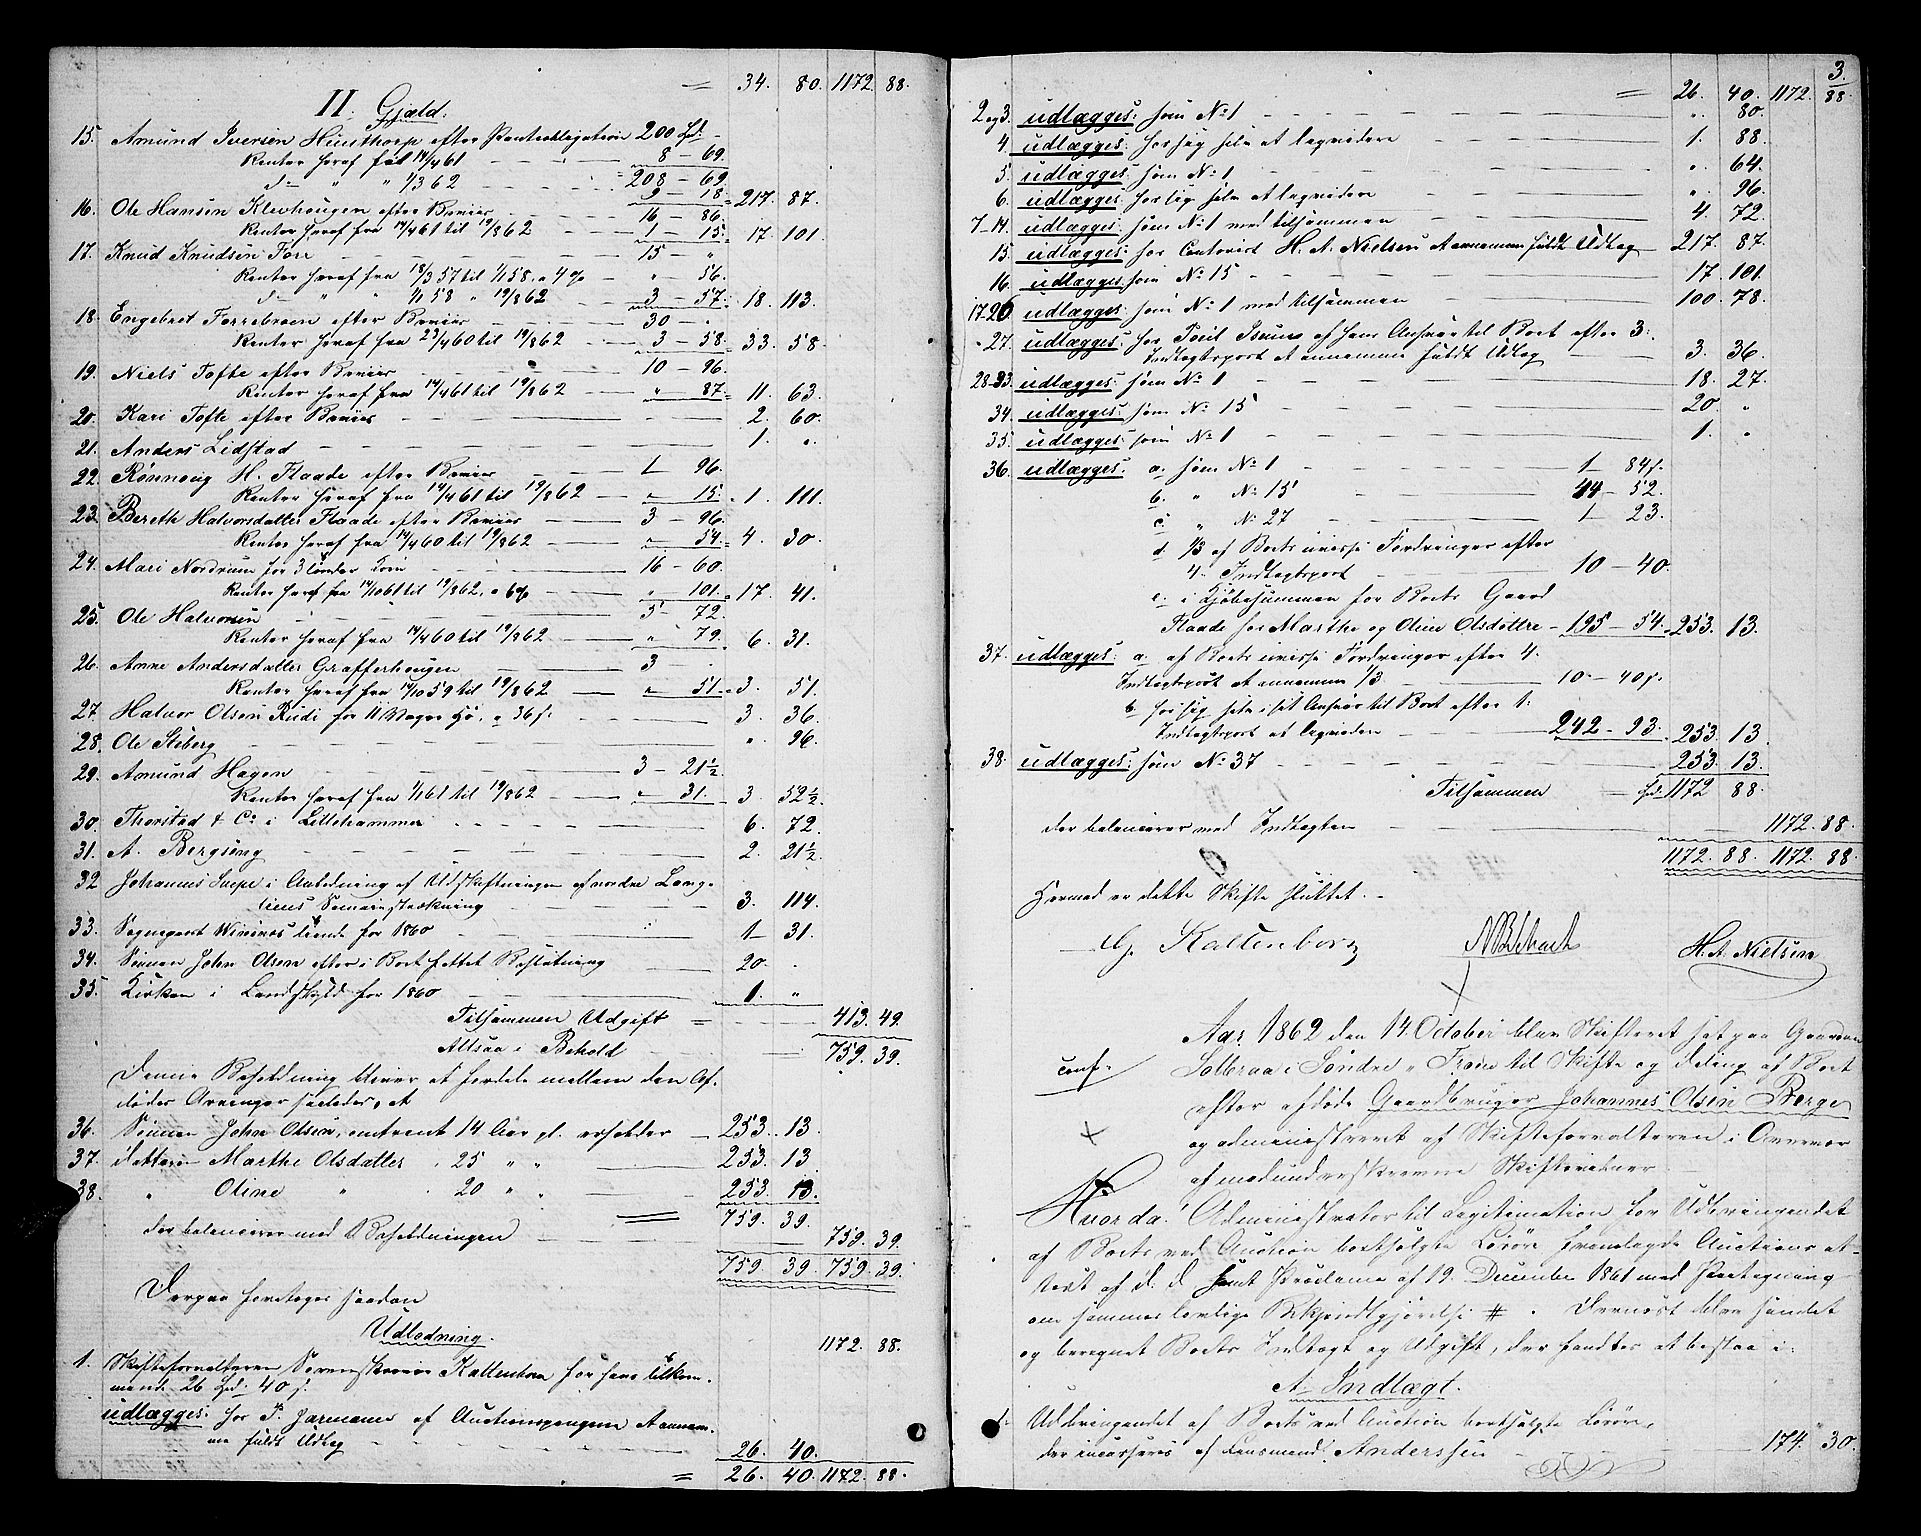 = 34. 80. 1172. 88.
II. Gjæld.
15. Amund Iversen Hunthorp efter Pantobligation 200 Spd. -
Renter heraf til 14/4 61 - - - 8 - 69.
do " " 1/3 62 - - - 208 - 69.
9 - 18. = 217. 87.
16. Ole Hansen Klevhougen efter Beviis - - 16 - 86.
Renter heraf fra 14/4 61 til 19/8 62 - - 1 - 15. = 17. 101.
17. Knud Knudsen Forr - - - 15 - "
Renter heraf fra 18/3 57 til 1/1 58. a 4 % - " - 56.
do " " 1/1 58 " 19/8 62 - - 3 - 57. = 18. 113.
18. Engebret Forrebroen efter Beviis - - 30 - .
Renter heraf fra 23/4 60 til 19/8 62 - - 3 - 58. = 33. 58.
19. Niels Tofte efter Beviis - - 10 - 96.
Renter heraf fra 14/4 61 til 19/8 62 - - " 87. = 11. 63.
20. Kari Tofte efter Beviis - - 2. 60.
21. Anders Lidstad - - 1. ".
22. Rønnoug H. Flaade efter Beviis - - 1 - 96.
Renter heraf fra 14/4 61 til 19/8 62 - " 15. = 1. 111.
23. Bereth Halvorsdatter Flaade efter Beviis - 3 - 96.
Renter heraf fra 14/4 60 til 19/8 62 - " 54. = 4. 30.
24. Mari Nordrum for 3 tønder Korn - - 16 - 60.
Renter heraf fra 14/10 61 til 19/8 62. a 6 % - " 101. = 17. 41.
25. Ole Halvorsen - - 5 - 72.
Renter heraf fra 14/4 60 til 19/8 62 - " 79. 6. 31.
26. Anne Andersdatter Grafferhougen - 3 .
Renter heraf fra 14/10 59 til 19/8 62 - " 51. = 3. 51.
27. Halvor Olsen Rudi for 11 Voger Hø, a 36 s. - - 3. 36.
28. Ole Steberg - - ". 96.
29. Amund Hagen - - 3 - 21 1/2
Renter heraf fra 1/1 61 til 19/8 62 - " 31. 3. 52 1/2
30. Thorstad & Co i Lillehammer - - 6. 72.
31. A. Bergseng - - 2. 21 1/2.
32 Johannes i Anledning af Udskiftningen af nordre
3. 114.
33. Sogneprest tiende for 1860 - 1 - 31.
34. Sønnen John Olsen efter i Boet fattet Beslutning - 20. .
35. Kirken i Landskyld for 1860 - 1. "
Tilsammen Udgift = - 413. 49.
Altsaa i Behold - 759. 39.
Denne Beholdning bliver at fordele mellem den Af-
dødes Arvinger saaledes, at
36. Sønnen John Olsen, omtrent 14 Aar gl. erholder - 253. 13.
37. Datteren Marthe Olsdatter . 25 " " - 253. 13.
38. " Oline " . 20 " " - 253. 13.
759. 39.
der balancerer med Beholdningen - - 759. 39.
759. 39. 759. 39.
Derpaa foretoges saadan
Udlodning.
1172. 88.
1. Skifteforvalteren Sorenskriver Kaltenborn for hans tilkom-
mende 26 Spd. 40 s.
udlægges: hos P. Jørmann af Auctionspengene Annam-
me fuldt Udlæg - - 26. 40.
= 26. 40. 1172. 88.
3.
= 26. 40. 1172. 88.
2 og 3. udlægges: som No 1 - - ". 80.
4. udlægges: hos sig selv at leqvidere - 1. 88.
5. udlægges: som No 1 - - ". 64.
6. udlægges: hos sig selv at leqvidere - ". 96.
7-14. udlægges: som No 1 med tilsammen - 4. 72.
15. udlægges: hos Contorist H. A. Nielsen Annamme fuldt Udlæg - 217. 87.
16. udlægges: som No 15 - - 17. 101.
17-26 udlægges: som No 1 med tilsammen - 100. 78.
27. udlægges: hos Poul Iversen af hans Ansvar til Boet efter 3:
Indtægtspost at annamme fuldt Udlæg - 3. 36.
28-33. udlægges: som No 1 - - 18. 27.
34. udlægges: som No 15 - - 20. "
35. udlægges: som No 1 - - 1. "
36. udlægges: a. som No 1 - - 1 - 84 s.
b. " No 15 - - 44 - 52.
c. " No 27 - 1 - 23.
d. 1/3 af Boets uvisse Fordringer efter
4. Indtægtspost - - 10 - 40.
e. i Kjøbesummen for Boets Gaard
Flaade hos Marthe og Oline Olsdøttre - 195 - 54. = 253. 13.
37. udlægges: a. af Boets uvisse Fordringer efter 4.
Indtægtspost at annamme 1/3 - - 10 - 40 s.
b. hos sig selv i sit Ansvar til Boet efter 1.
Indtægtspost at leqvidere - - 242 - 93. = 253. 13.
38. udlægges: som No 37 - - 253. 13.
Tilsammen - Spd. 1172 88.
der balancerer med Indtægten - - 1172. 88.
1172. 88. 1172. 88.
Hermed er dette Skifte sluttet. -
G. Kaltenborn H. A. Nielsen
Aar 1862 den 14. October blev Skifteret sat paa Gaarden
conf. Solbraa i Søndre Fron til Skifte og Deling af Boet
efter afdøde Gaardbruger Johannes Olsen Berge
og administreret af Skifteforvalteren i Overvær
af medunderskrevne Skiftevidner -
Hvorda: Administrator til Legitimation for Udbringendet
af Boets ved Auction bortsolgte Løsøre fremlagde Auctions at-
test af d. D. samt Proclama af 19. December 1861 med Paategning
om sammes lovlige Bekjendtgjørelse #. Dernæst blev samlet
og beregnet Boets Indtægt og Udgift, der fandtes at bestaa i:
A. Indtægt.
1. Udbringendet af Boets ved Auction bortsolgte Løsøre,
der incasseres af Lensmand Anderssen - - 174. 30.